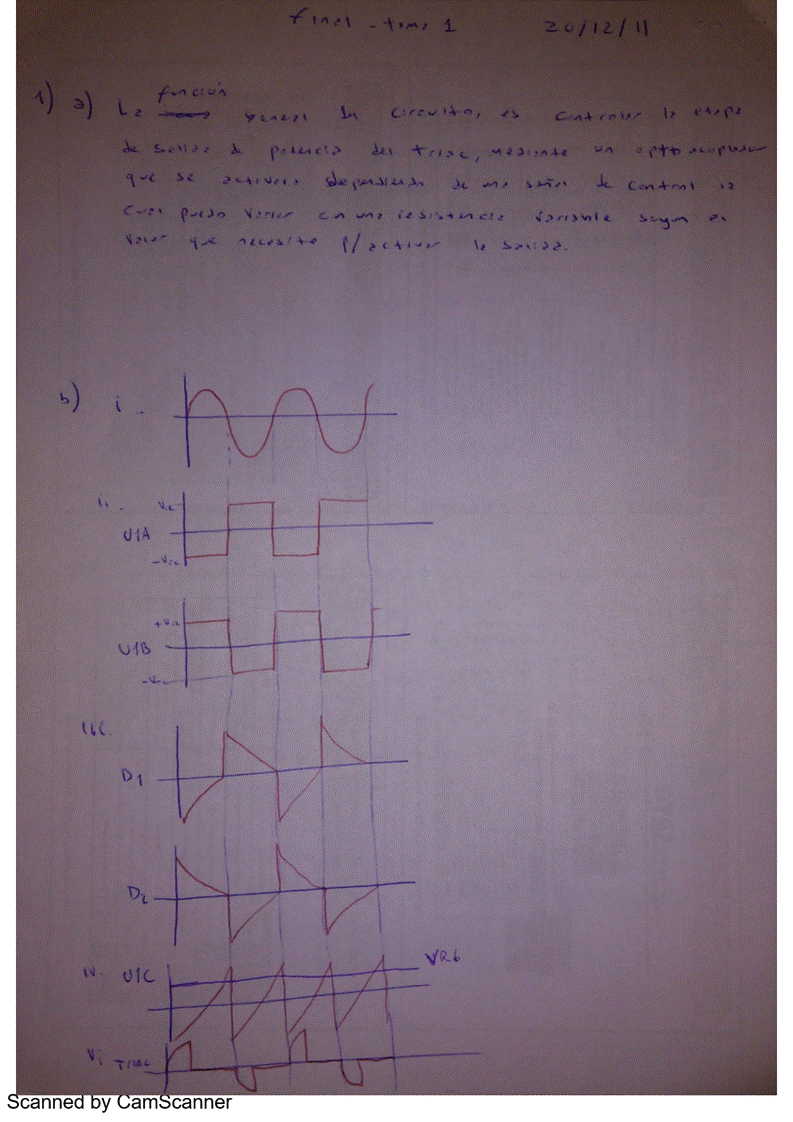 Final - tema 1 20/12/11
1) a) La función general del circuito, es controlar la etapa
de salida de potencia del triac, mediante un optoacoplador
que se activara dependiendo de una señal de control la
cual puedo variar con una resistencia variable segun el
valor que necesite p/activar la salida.
b) i.
ii. Vcc
U1A
-Vcc
+Vcc
U1B
-Vcc
iii.
D1
D2
iv. U1C VR6
Vi TRIAC
Scanned by CamScanner